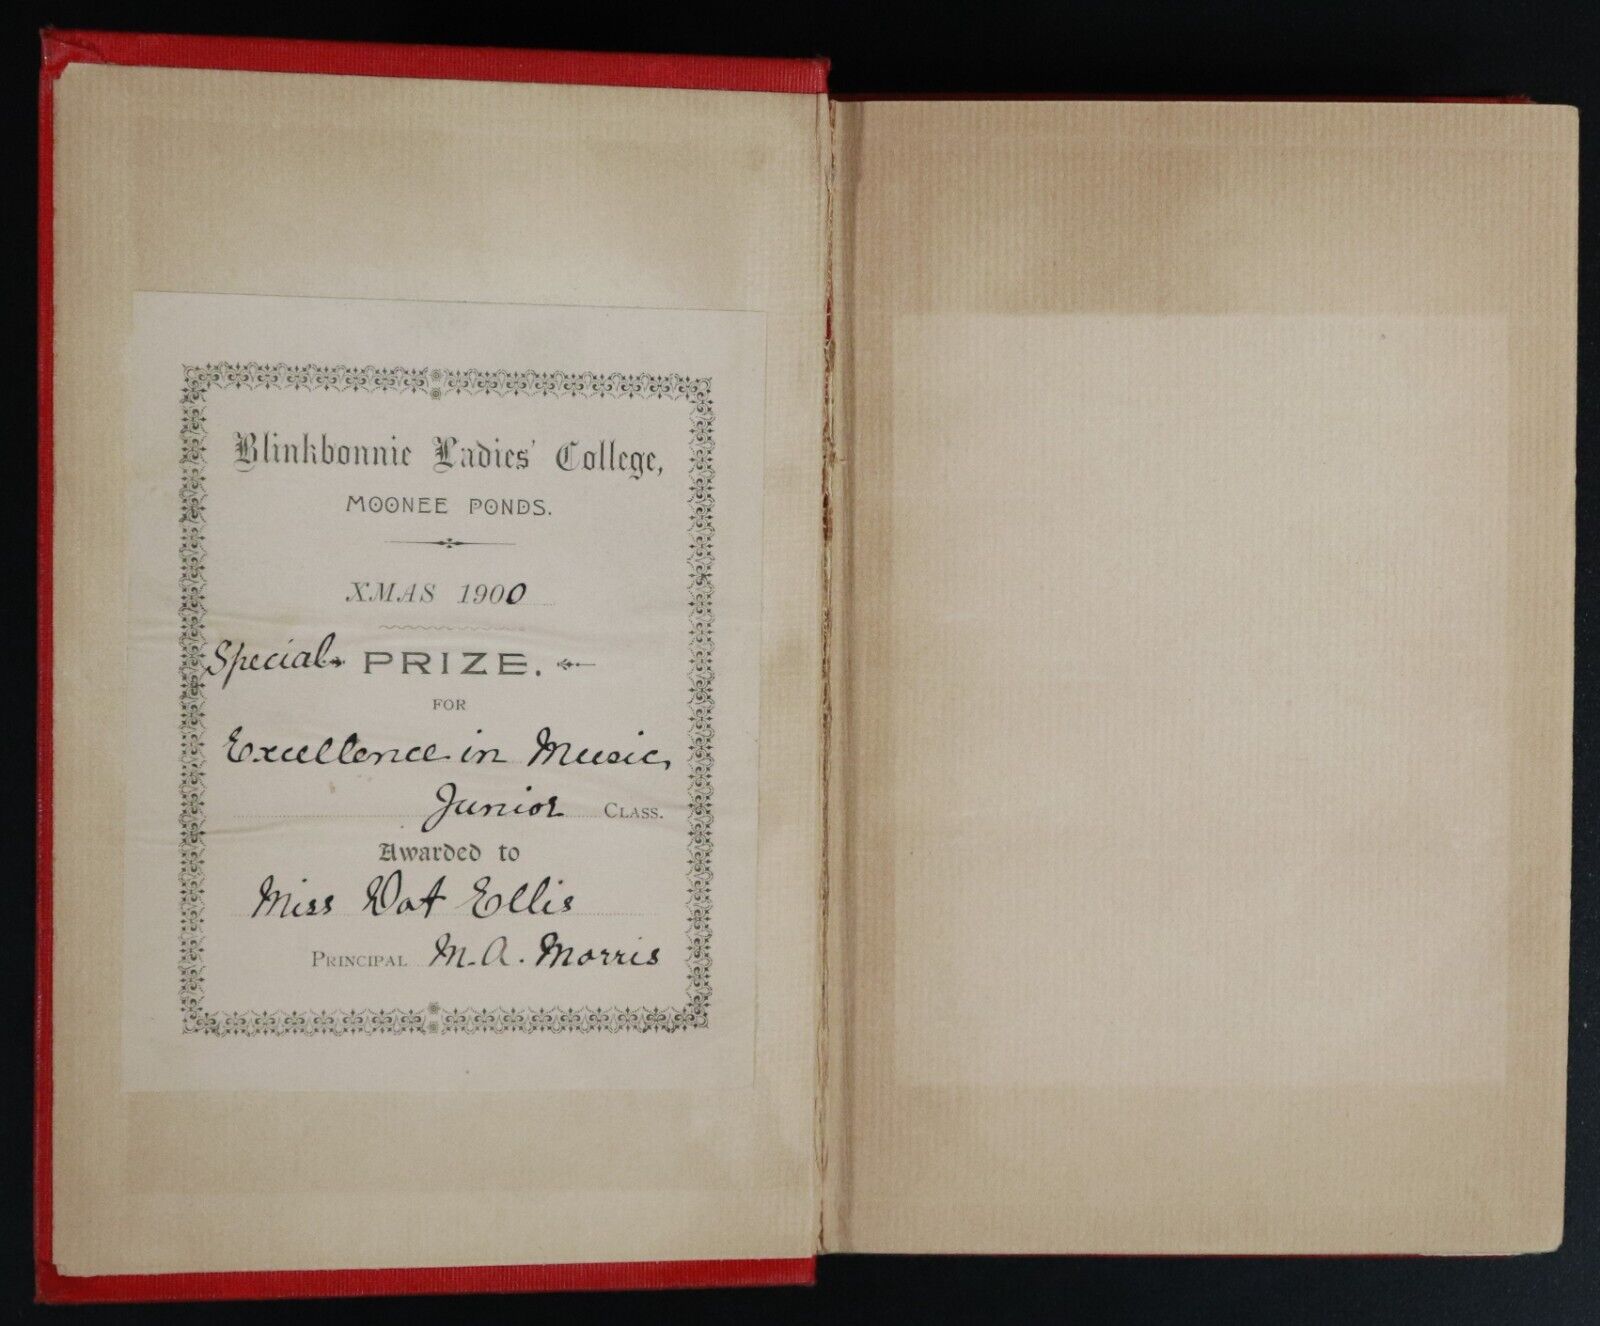 Blinkbonnie Ladies' College,
MOONEE PONDS.
XMAS 1900
Special PRIZE.
FOR
Excellence in Music,
Junior CLASS.
Awarded to
Miss Dot Ellis
PRINCIPAL M. A. Morris